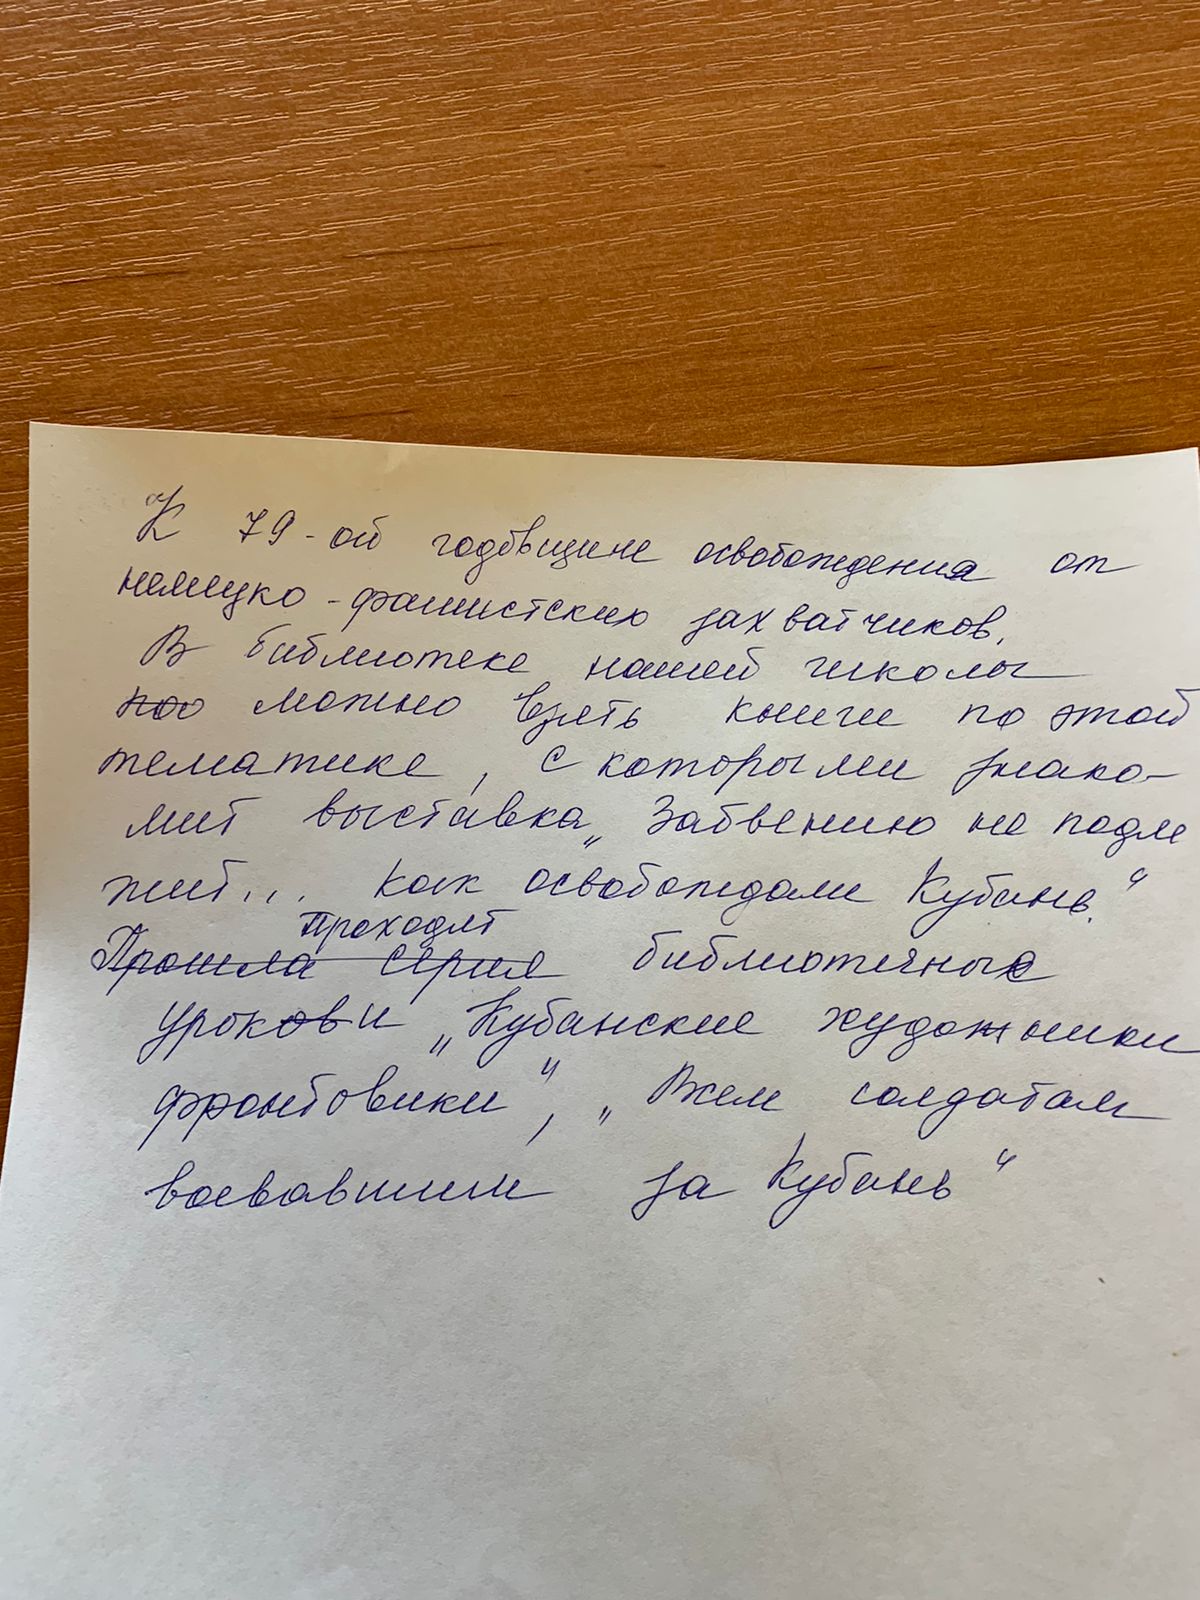 К 79-ой годовщине освобождения от
немецко-фашистских захватчиков.
В библиотеке нашей школы
можно взять книги по этой
тематике, с которыми знако-
мит выставка „Забвению не подле
жит... как освобождали Кубань."
Проходят
Прошла серия библиотечные
уроки „Кубанские художники
фронтовики", „Всем солдатам
воевавшим за Кубань"